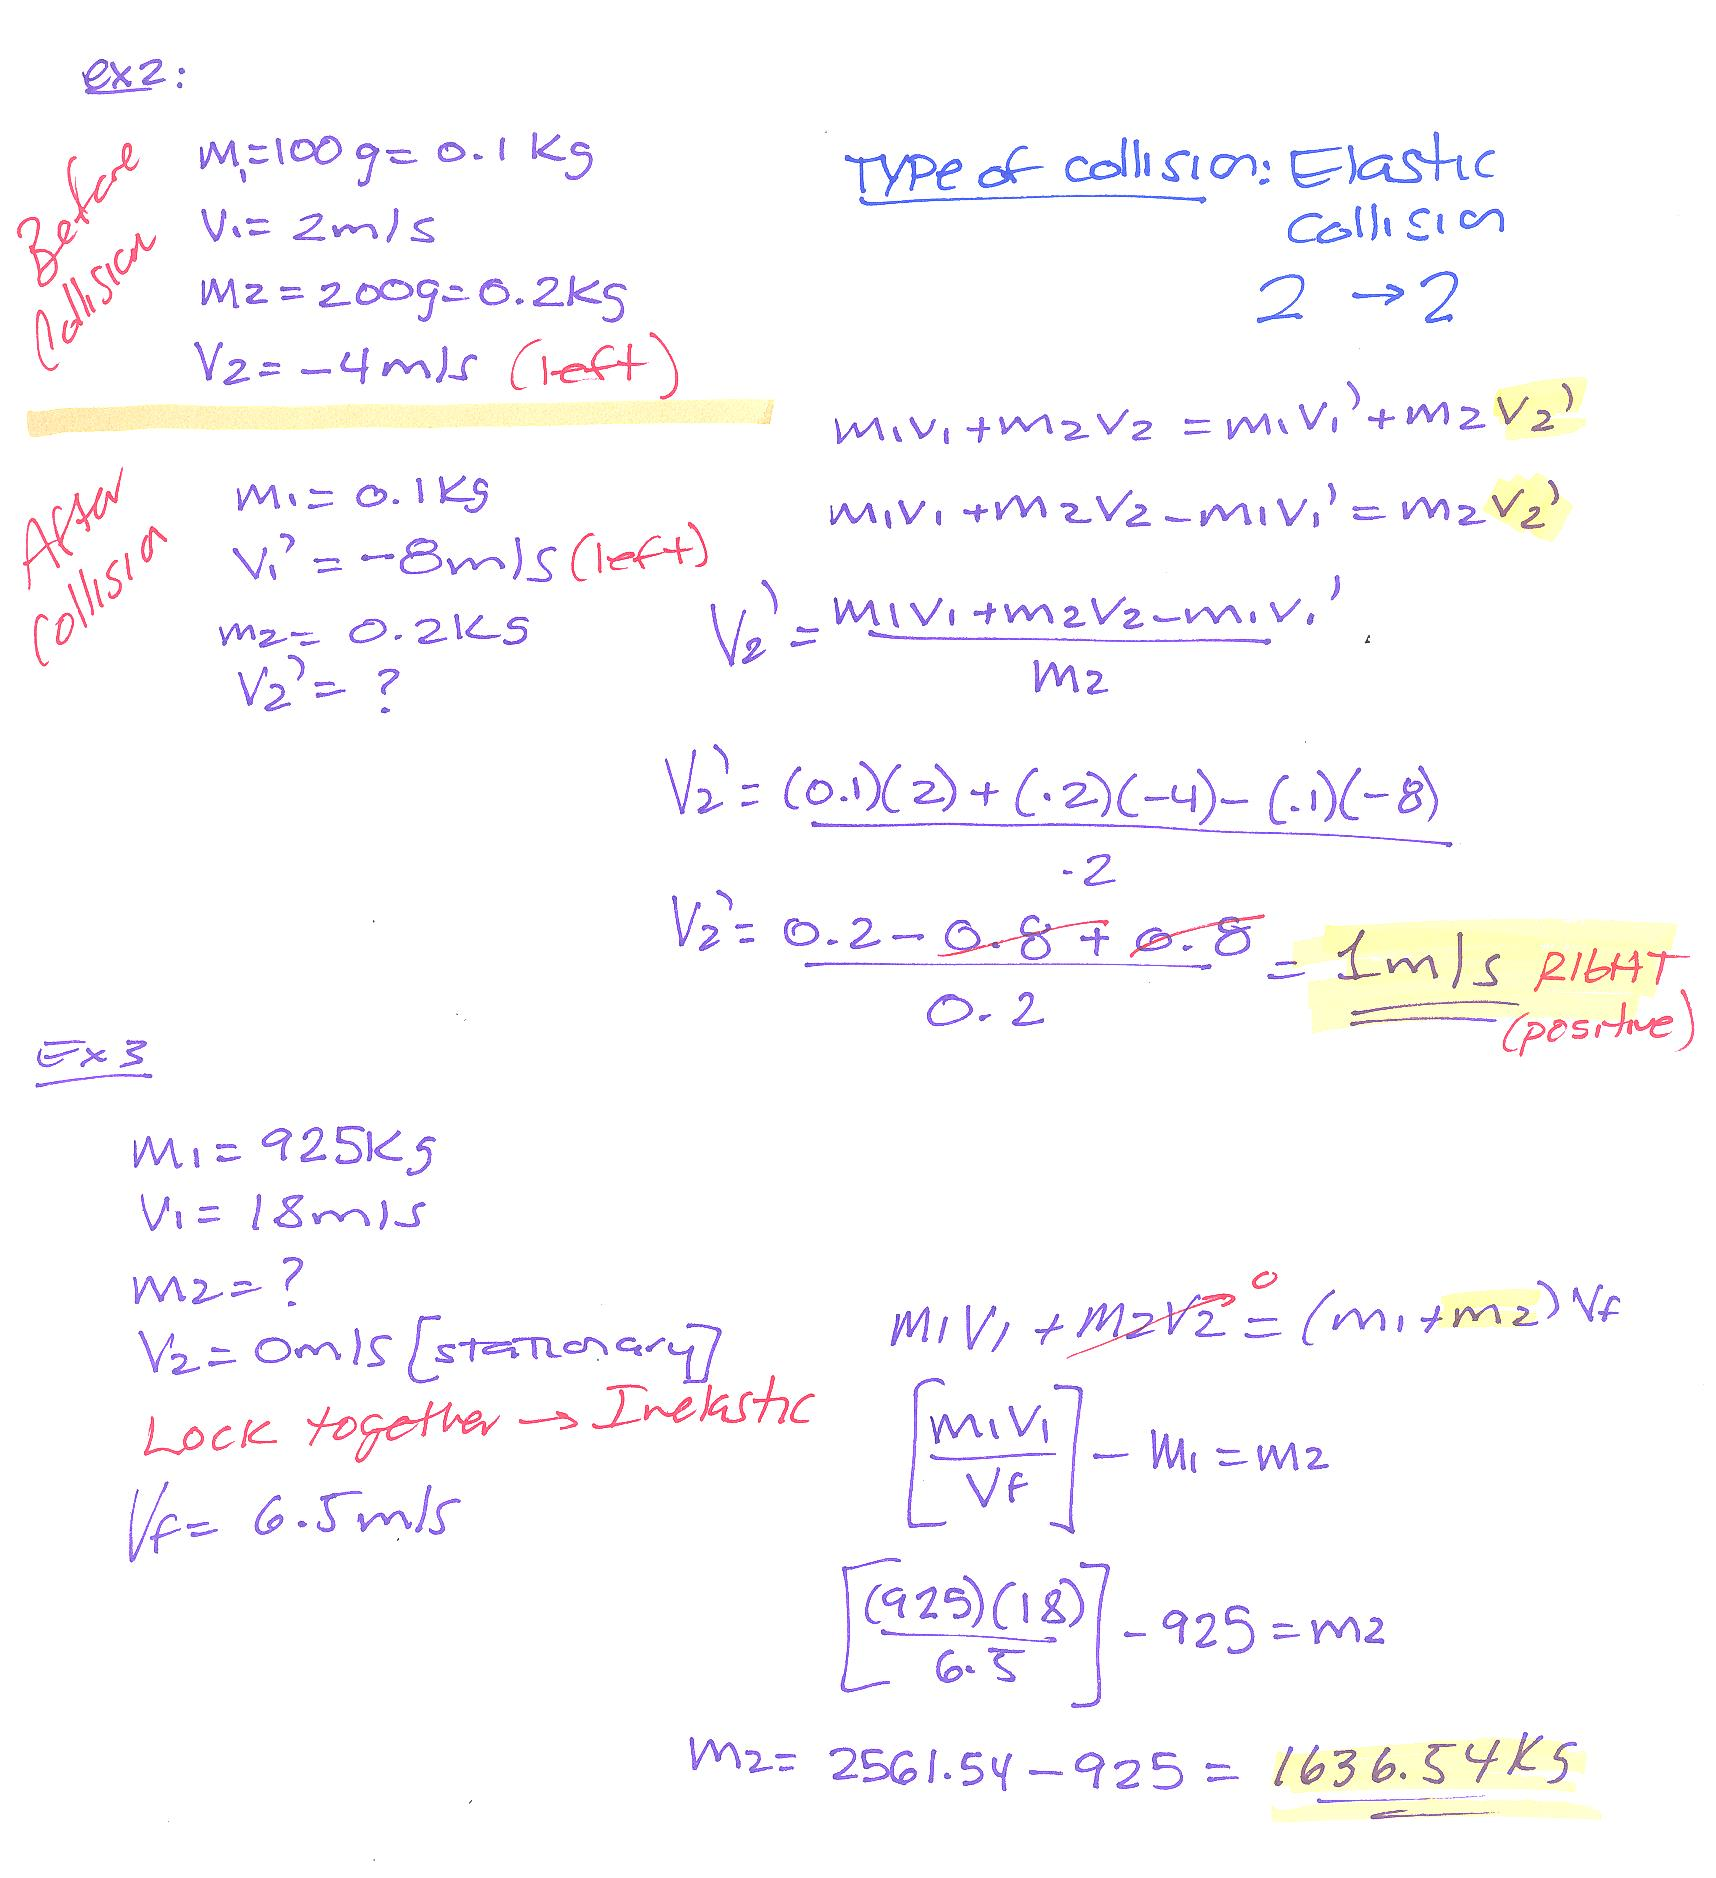 ex2:
Before Collision
m₁=100g=0.1Kg
V₁=2m/s
m2=200g=0.2Kg
V2=-4m/s (left)
Type of collision: Elastic
Collision
2 → 2
After Collision
m₁=0.1Kg
V₁'=-8m/s (left)
m2=0.2Kg
V2'=?
m₁V₁+m2V2=m₁V₁'+m2V2'
m₁V₁+m2V2-m₁V₁'=m2V2'
V2'=m₁V₁+m2V2-m₁V₁'
m2
V2'=(0.1)(2)+(.2)(-4)-(.1)(-8)
.2
V2'=0.2-0.8+0.8 = 1m/s RIGHT
0.2
(positive)
Ex3
m₁=925Kg
V₁=18m/s
m2=?
V2=0m/s [stationary]
Lock together → Inelastic
Vf=6.5m/s
m₁V₁+m2V2 0 =(m₁+m2)Vf
[m₁V₁/Vf]-m₁=m2
[(925)(18)/6.5]-925=m2
m2=2561.54-925=1636.54Kg